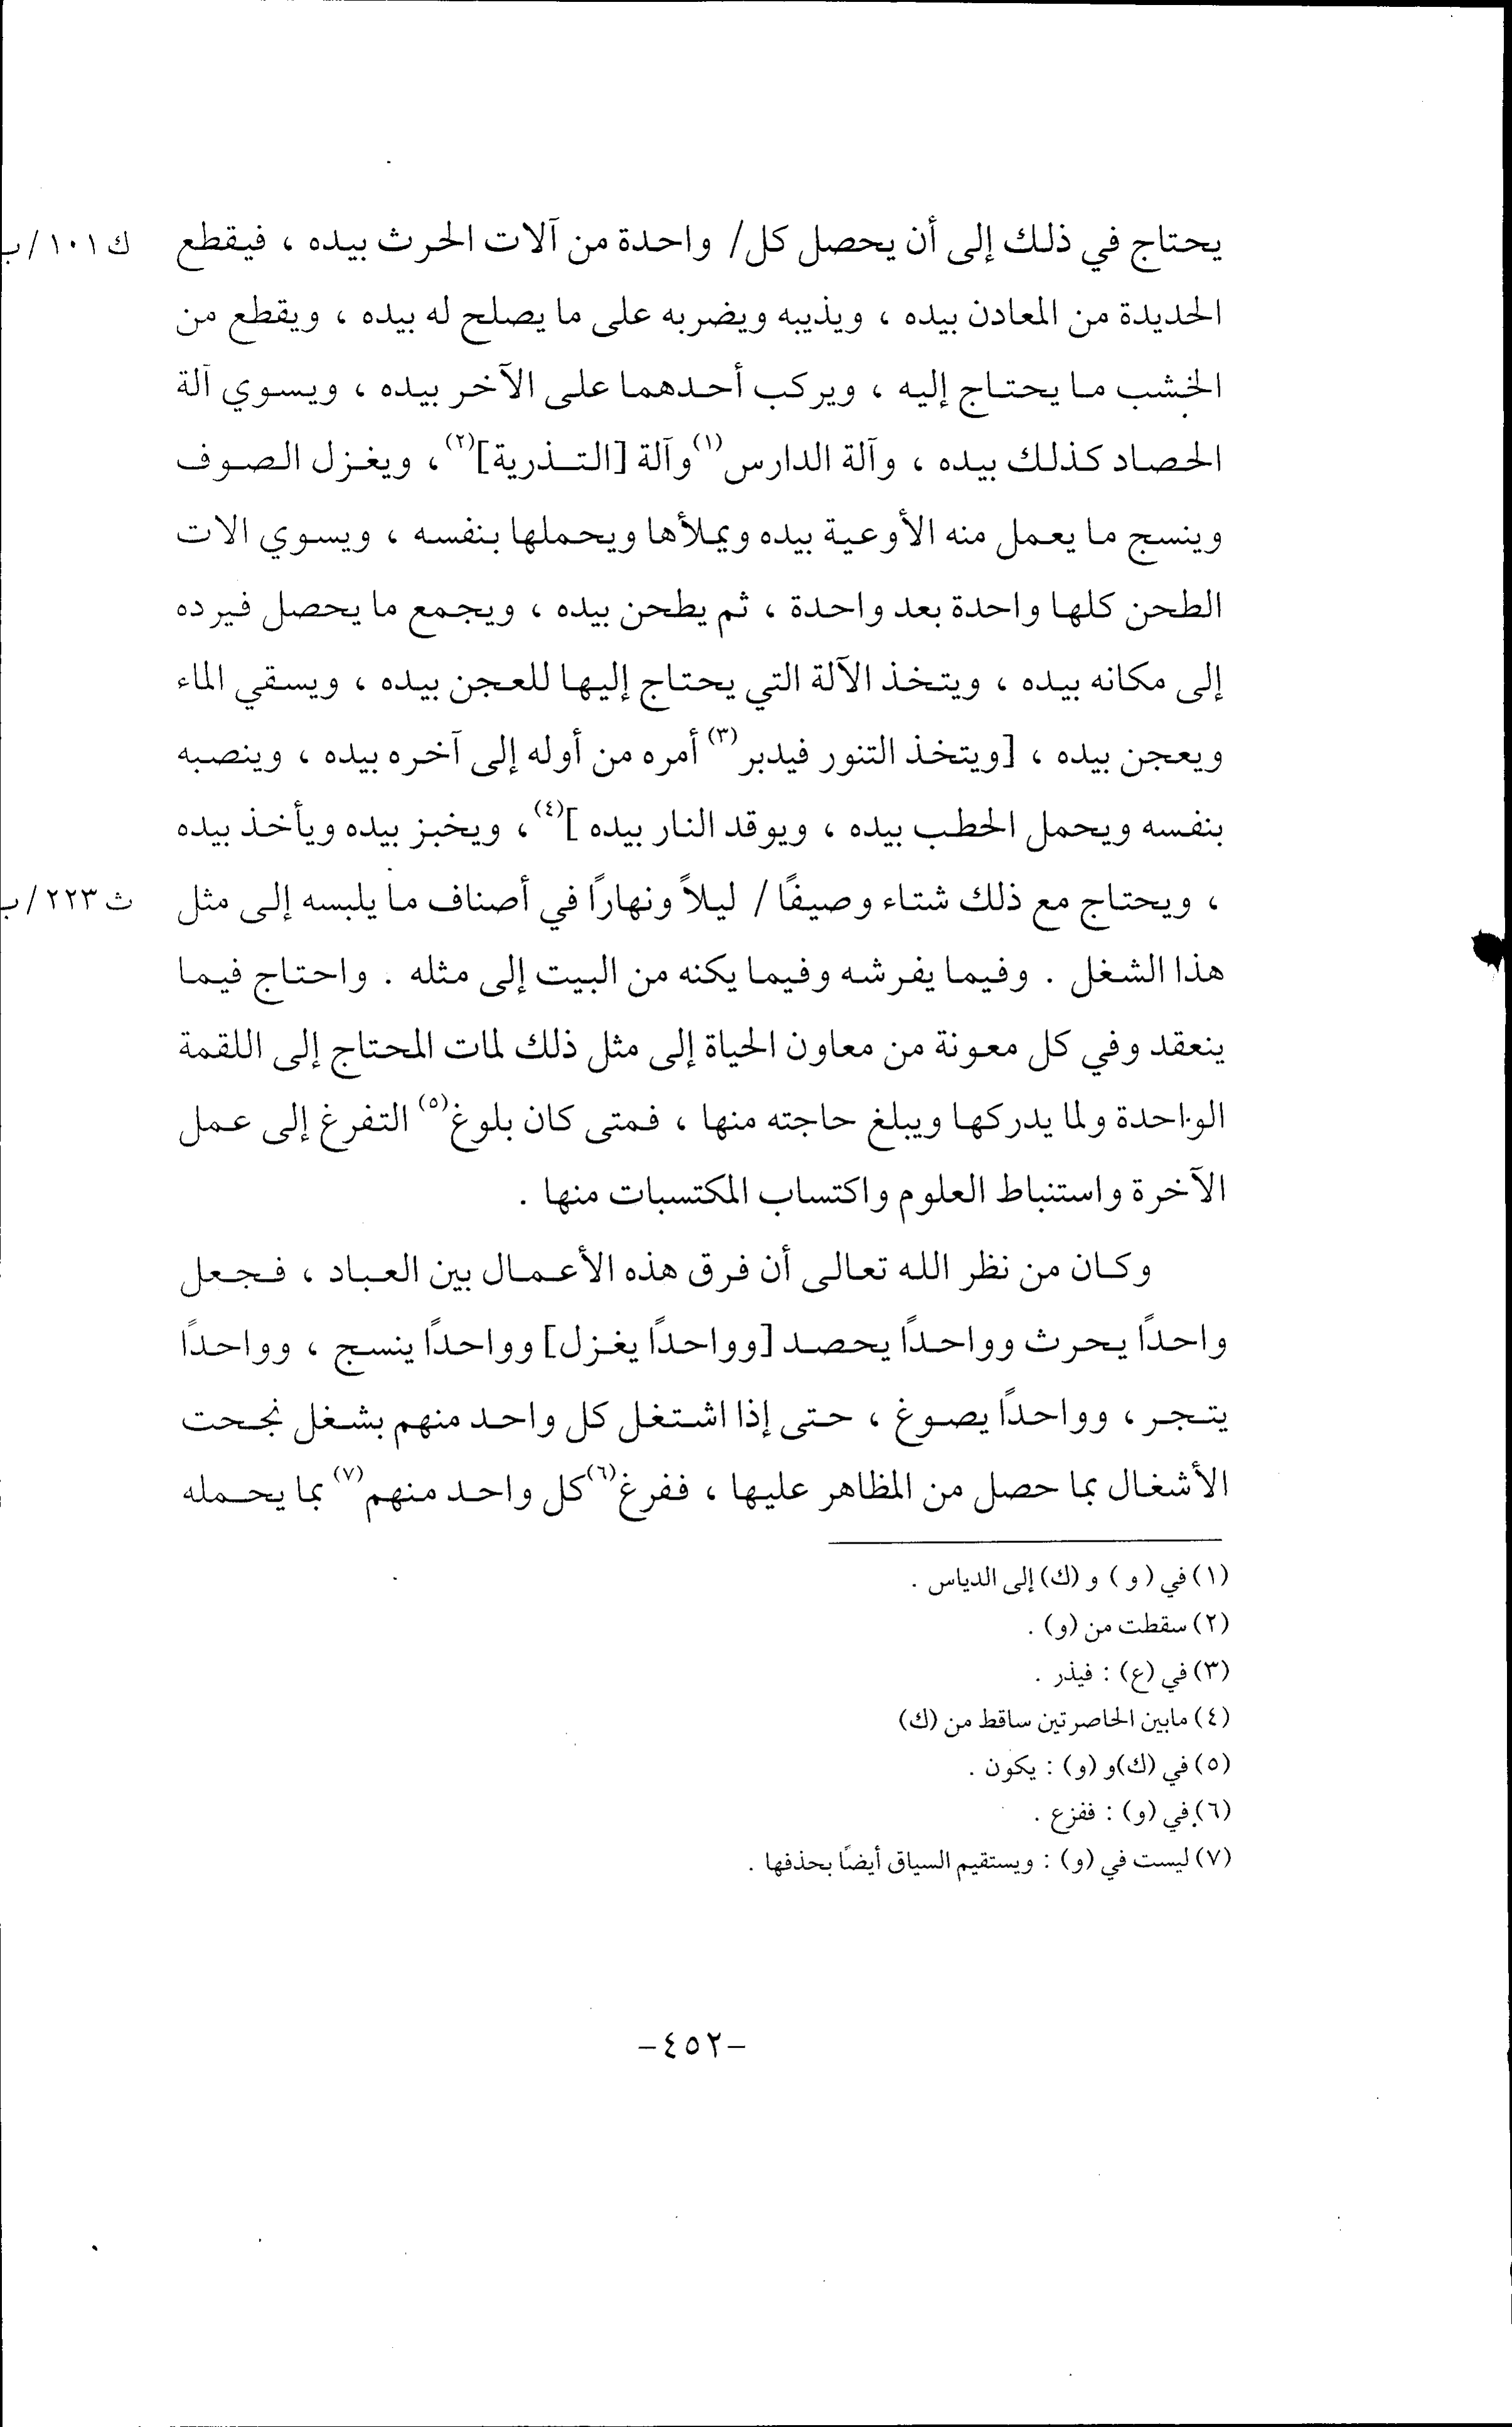 يحتاج في ذلك إلى أن يحصل كل/ واحدة من آلات الحرث بيده ، فيقطع ك ١٠١/ب
الحديدة من المعادن بيده ، ويذيبه ويضربه على ما يصلح له بيده ، ويقطع من
الخشب ما يحتاج إليه ، ويركب أحدهما على الآخر بيده ، ويسوي آلة
الحصاد كذلك بيده ، وآلة الدارس(١) وآلة [التذرية](٢)، ويغزل الصوف
وينسج ما يعمل منه الأوعية بيده ويملأها ويحملها بنفسه ، ويسوي الات
الطحن كلها واحدة بعد واحدة ، ثم يطحن بيده ، ويجمع ما يحصل فيرده
إلى مكانه بيده ، ويتخذ الآلة التي يحتاج إليها للعجن بيده ، ويسقي الماء
ويعجن بيده ، [ويتخذ التنور فيدبر(٣) أمره من أوله إلى آخره بيده ، وينصبه
بنفسه ويحمل الحطب بيده ، ويوقد النار بيده ](٤)، ويخبز بيده ويأخذ بيده
، ويحتاج مع ذلك شتاء وصيفًا / ليلاً ونهارًا في أصناف ما يلبسه إلى مثل ث ٢٢٣/ب
هذا الشغل . وفيما يفرشه وفيما يكنه من البيت إلى مثله . واحتاج فيما
ينعقد وفي كل معونة من معاون الحياة إلى مثل ذلك لمات المحتاج إلى اللقمة
الواحدة ولما يدركها ويبلغ حاجته منها ، فمتى كان بلوغ(٥) التفرغ إلى عمل
الآخرة واستنباط العلوم واكتساب المكتسبات منها .
وكان من نظر الله تعالى أن فرق هذه الأعمال بين العباد ، فجعل
واحدًا يحرث وواحدًا يحصد [وواحدًا يغزل] وواحدًا ينسج ، وواحدًا
يتجر ، وواحدًا يصوغ ، حتى إذا اشتغل كل واحد منهم بشغل نجحت
الأشغال بما حصل من المظاهر عليها ، ففرغ(٦) كل واحد منهم(٧) بما يحمله
(١) في ( و ) و (ك) إلى الدياس .
(٢) سقطت من (و) .
(٣) في (ع) : فيذر .
(٤) مابين الحاصرتين ساقط من (ك)
(٥) في (ك)و (و) : يكون .
(٦) في (و) : ففزع .
(٧) ليست في (و) : ويستقيم السياق أيضًا بحذفها .
-٤٥٢-